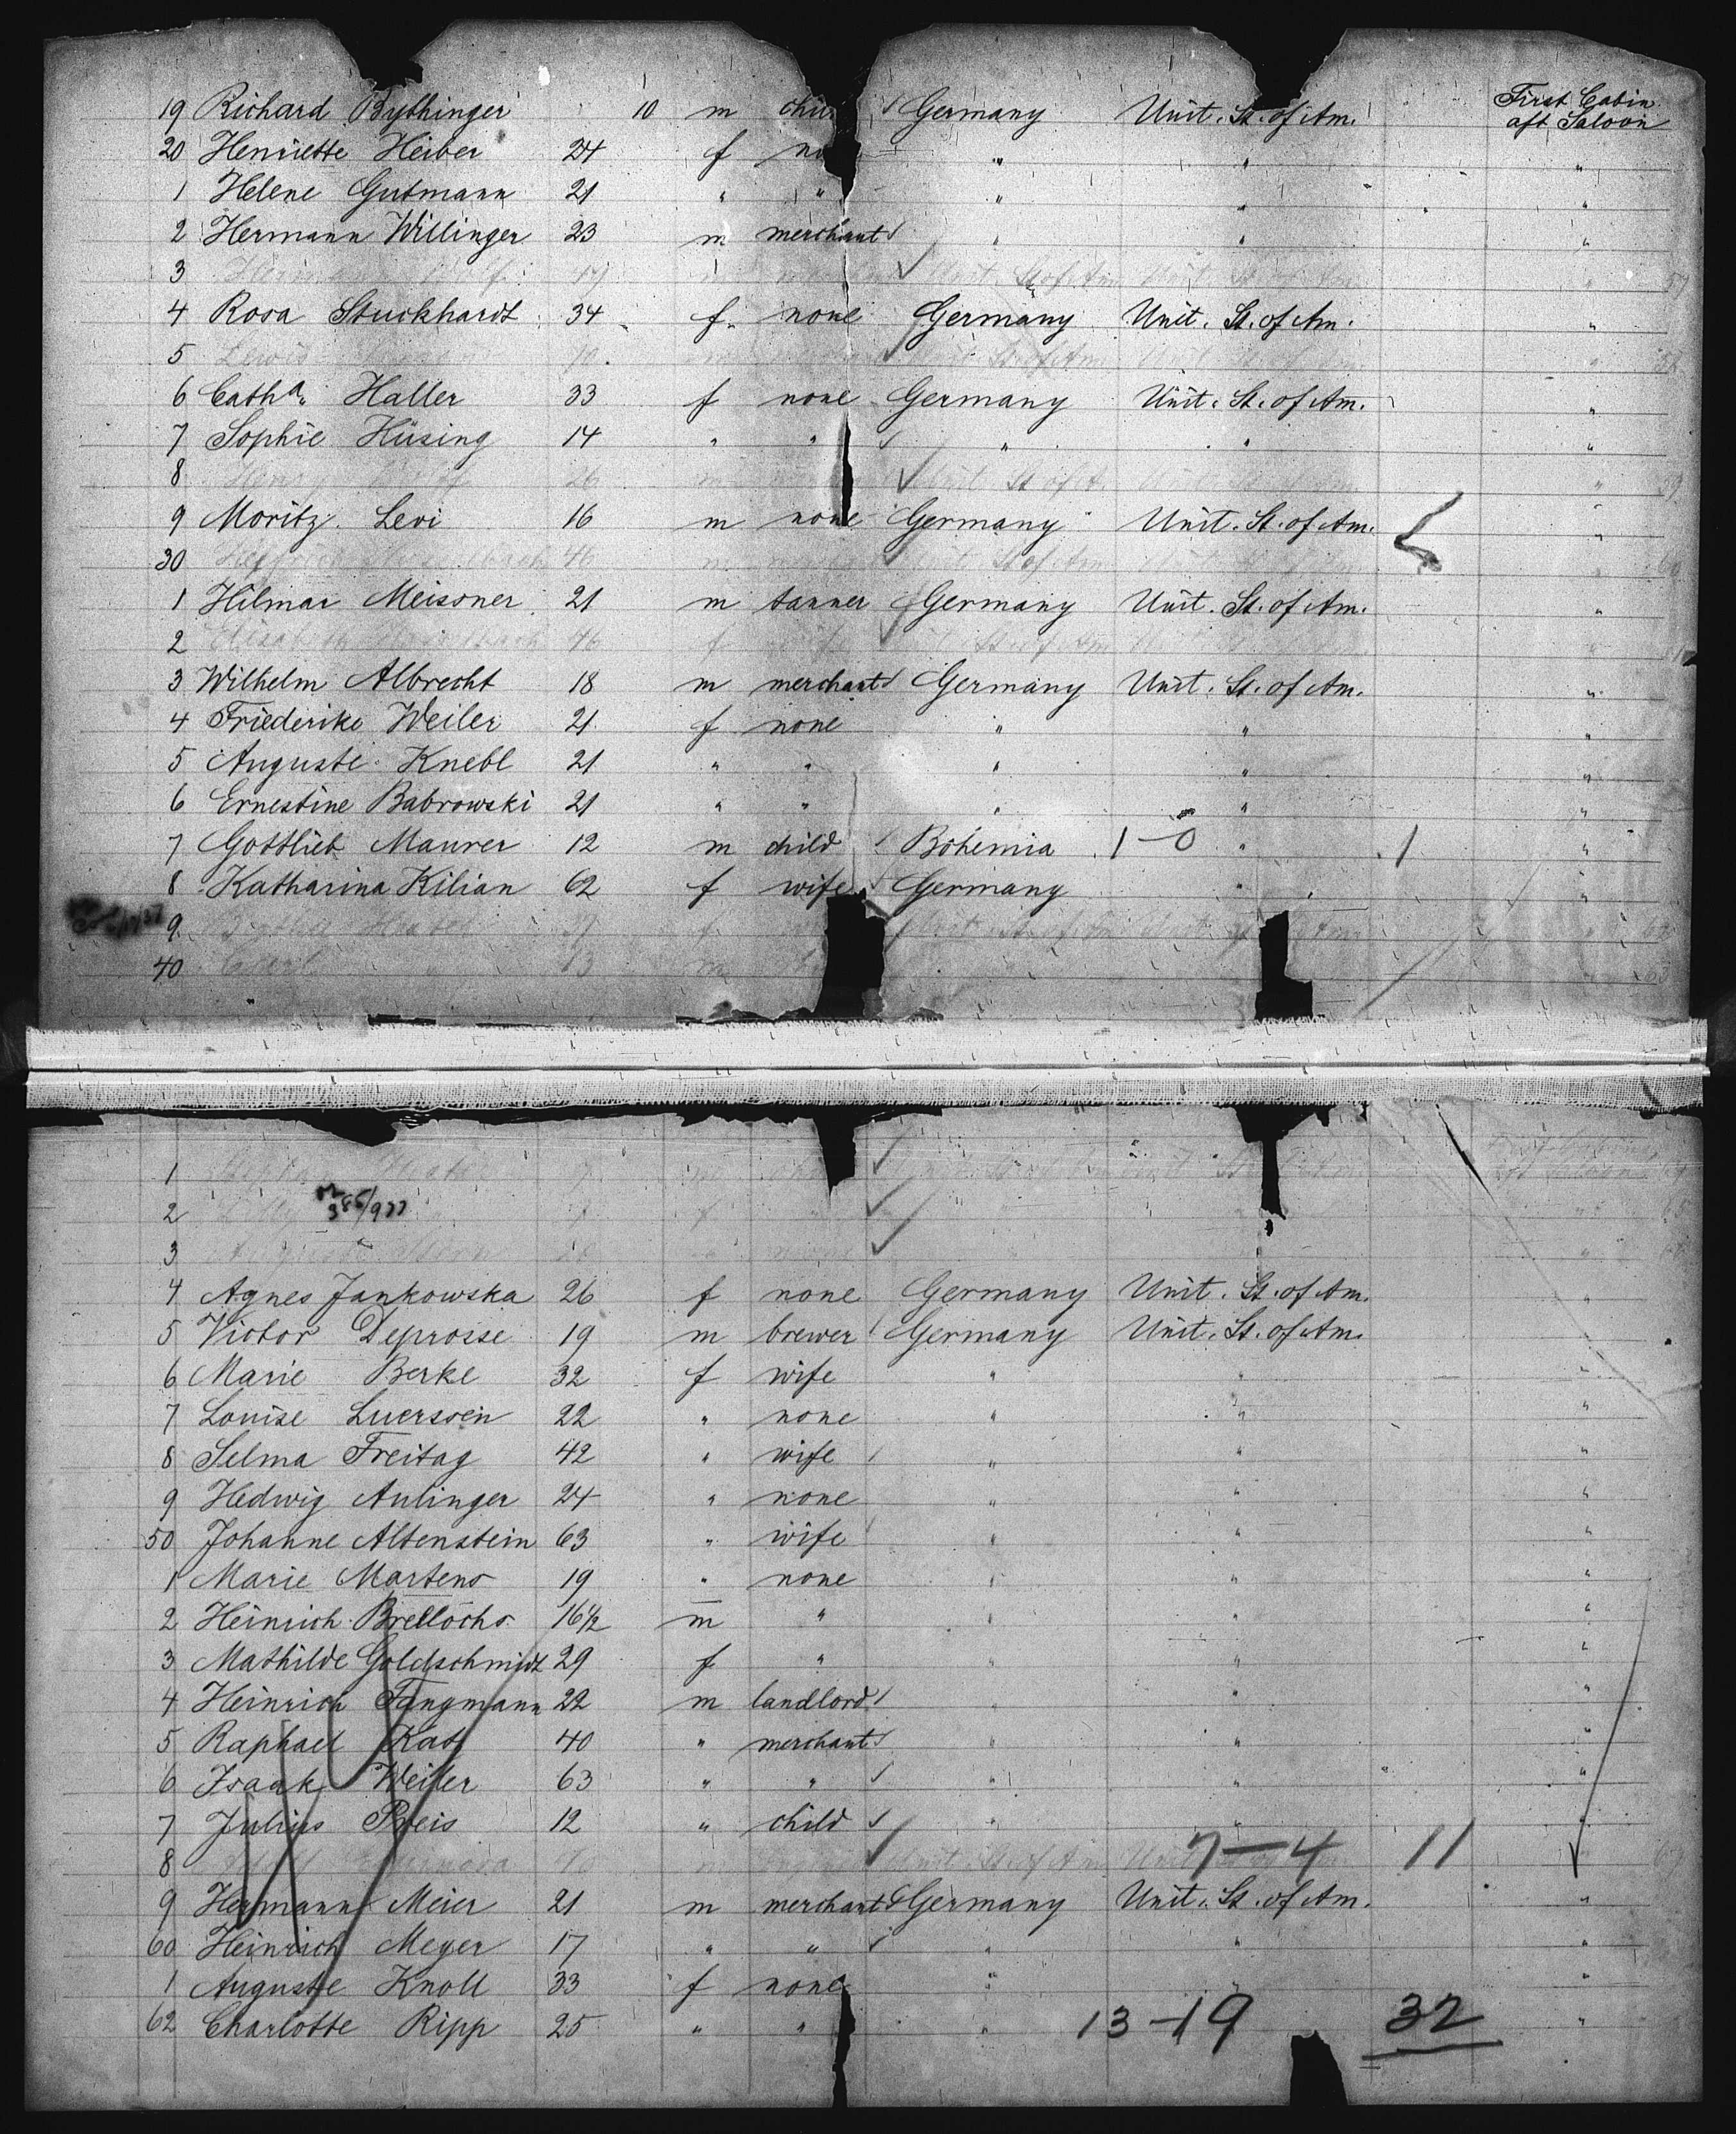 First Cabin
19 Richard Bythinger 10 m Germany Unit. St. of Am. aft Saloon
20 Henriette Heiber 24 f " " "
1 Helene Gutmann 21 " " " " "
2 Hermann Willinger 23 m merchant " " "
3 m Unit. St. of Am Unit. St. of Am. " 57
4 Rosa Stuckhardt 34 f. none Germany Unit. St. of Am. "
5 Lewis
6 Catha. Haller 33 f none Germany Unit. St. of Am. "
7 Sophie Hüsing 14 " " " " "
8 26 m Unit. St. of A. "
9 Moritz Levi 16 m none Germany Unit. St. of Am. "
30 46 m
1 Hilmar Meissner 21 m tanner Germany Unit. St. of Am. "
2 Elisabeth 46 f
3 Wilhelm Albrecht 18 m merchant Germany Unit. St. of Am. "
4 Friederike Weiler 21 f none " " "
5 Auguste Knebl 21 " " " " "
6 Ernestine Babrowski 21 " " " " "
7 Gottlieb Maurer 12 m child Bohemia 1-0 " 1 "
8 Katharina Kilian 62 f wife Germany " "
9
40 Carl 13 m
1
2
3
4 Agnes Jankowska 26 f none Germany Unit. St. of Am. "
5 Victor Deprosse 19 m brewer Germany Unit. St. of Am.
6 Marie Berke 32 f wife " " "
7 Louise Luerssen 22 " none " " "
8 Selma Freitag 42 " wife " " "
9 Hedwig Aulinger 24 " none " " "
50 Johanne Altenstein 63 " wife " " "
1 Marie Martens 19 " none " " "
2 Heinrich Brellochs 16 1/2 m " " " "
3 Mathilde Goldschmidt 29 f " " " "
4 Heinrich Tangmann 22 m landlord " " "
5 Raphael Katz 40 " merchant " " "
6 Isaak Weiler 63 " " " " "
7 Julius Preis 12 " child " " "
8 7-4 11
9 Hermann Meier 21 m merchant Germany Unit. St. of Am. "
60 Heinrich Meyer 17 " " " " "
1 Auguste Knoll 33 f none " " "
62 Charlotte Ripp 25 " " " 13-19 32 "